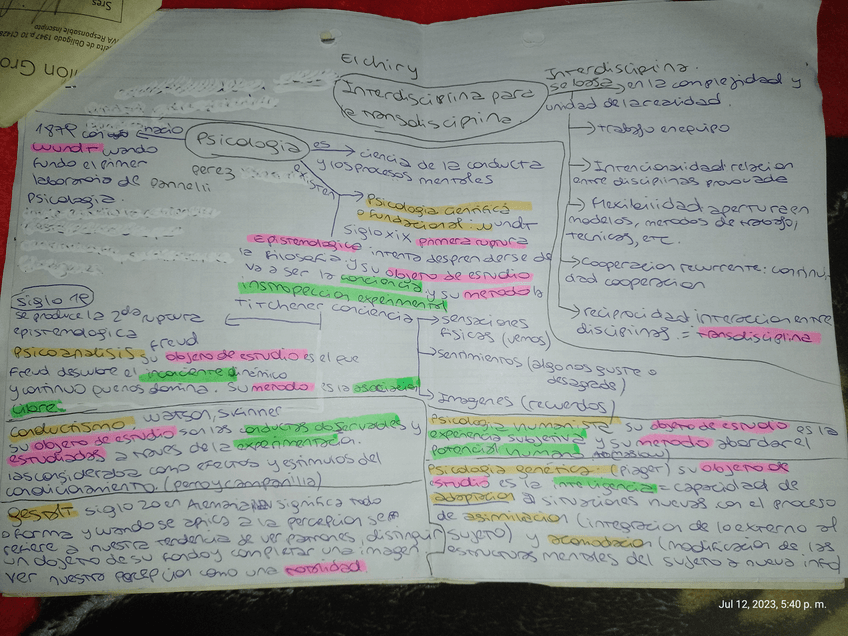 Sres
IVA Responsable Inscripto
Elchiry
Interdisciplina para
la transdisciplina.
Interdisciplina.
se basa en la complejidad y
unidad de la realidad.
→Trabajo en equipo
→Intencionalidad relacion
entre disciplinas provocada
→Flexibilidad apertura en
modelos, metodos de trabajo,
tecnicas, etc.
→cooperacion recurrente: continui-
dad cooperacion
→reciprocidad interaccion entre
disciplinas. = transdisciplina
nacio
wundt cuando
fundo el primer
laboratorio de
psicologia.
Psicologia es → ciencia de la conducta
y los procesos mentales
perez
existen
Psicologia cientifica
o fundacional. wundt
siglo xix primera ruptura
epistemologica intenta desprenderse de
la filosofia y su objeto de estudio
va a ser la conciencia y su metodo la
instropeccion experimental
Titchener conciencia
→sensaciones
fisicas (vemos)
→sentimientos (algo nos guste o
desagrade)
→Imagenes (recuerdos)
siglo 19
se produce la 2da ruptura
epistemologica
Freud
psicoanalisis su objeto de estudio es el que
Freud descubre el inconciente dinámico
y continuo que nos domina. Su metodo es la asociacion
libre.
conductismo watson, skinner
su objeto de estudio son las conductas observables y
estudiadas a traves de la experimentacion.
las consideraba como efectos y estimulos del
condicionamiento. (perro y campanilla)
gestalt siglo 20 en Alemania significa todo
o forma y cuando se aplica a la percepcion se
refiere a nuestra tendencia de ver patrones, distinguir
un objeto de su fondo y completar una imagen
ver nuestra percepcion como una totalidad
Psicologia humanista su objeto de estudio es la
experiencia subjetiva y su metodo abordar el
potencial humano (maslow)
Psicologia genética: (piaget) su objeto de
estudio es la inteligencia = capacidad de
adaptacion a situaciones nuevas con el proceso
de asimilacion (integracion de lo externo al
sujeto) y acomodacion (modificacion de las
estructuras mentales del sujeto a nueva info
Jul 12, 2023, 5:40 p. m.